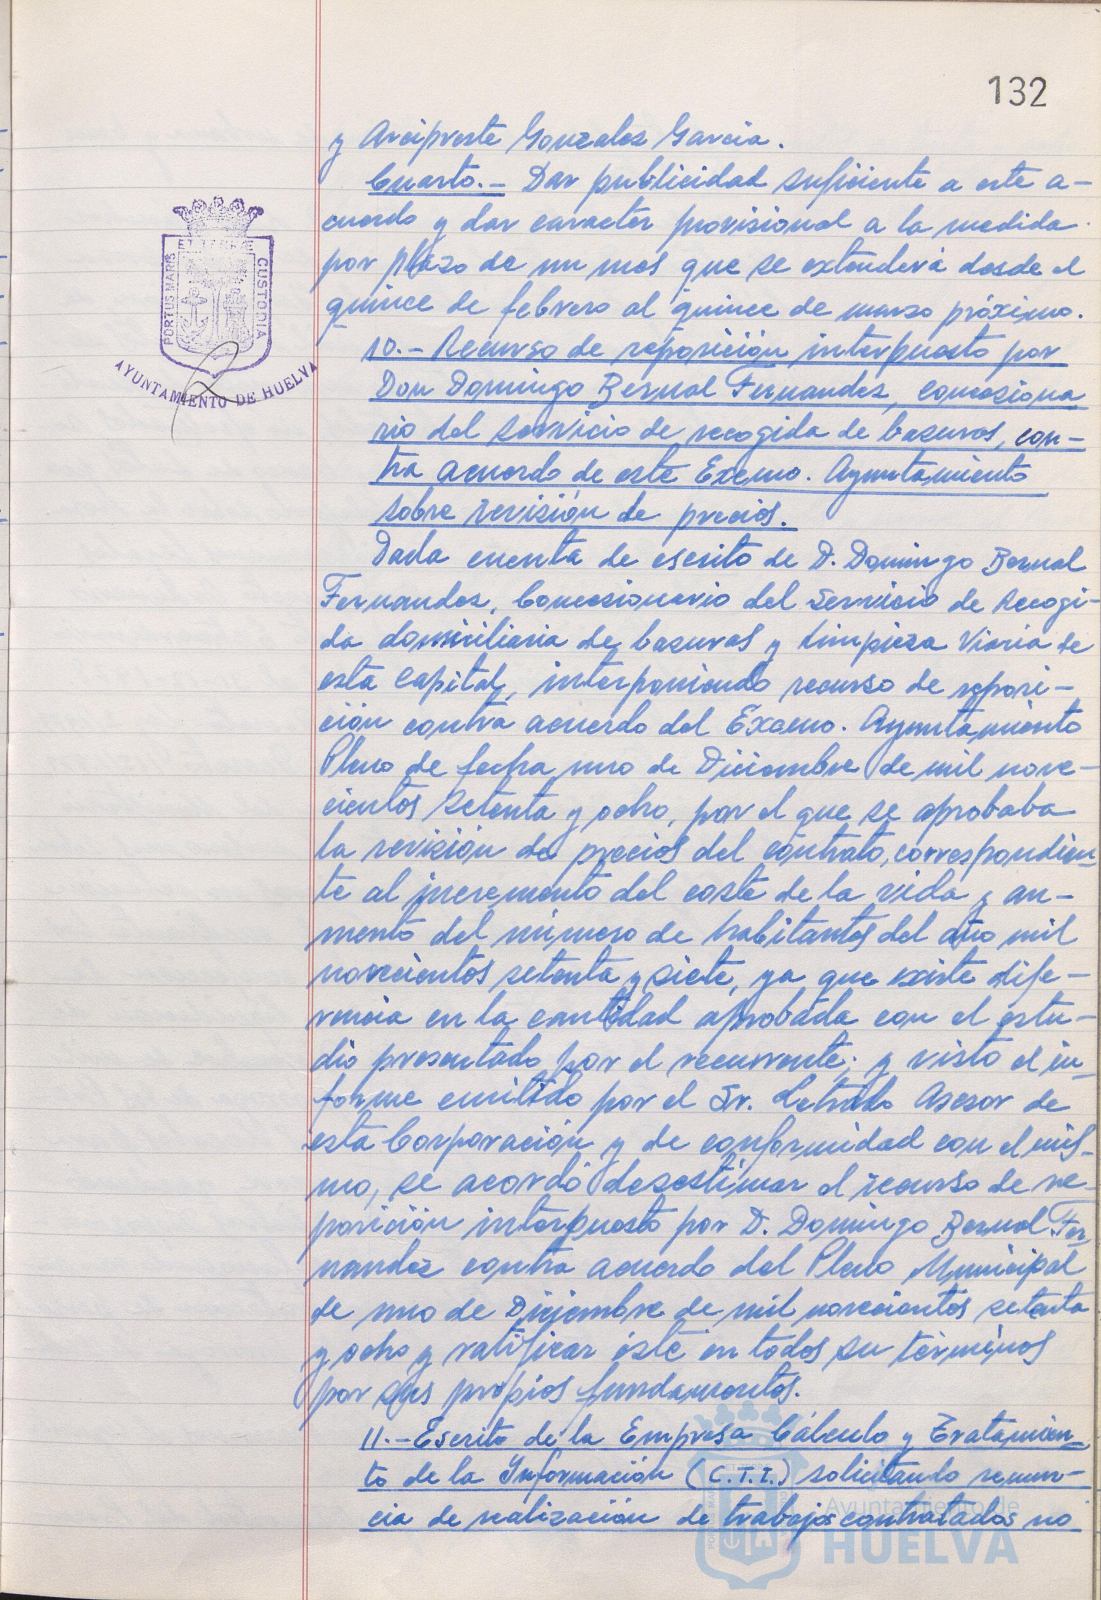 132
y Arcipreste Gonzalez Garcia.
Cuarto.- Dar publicidad suficiente a este a-
cuerdo y dar caracter provisional a la medida
por plazo de un mes que se extenderá desde el
quince de febrero al quince de marzo próximo.
10.- Recurso de reposición interpuesto por
Don Domingo Bernal Fernandez, concesiona
rio del servicio de recogida de basuras, con-
tra acuerdo de este Excmo. Ayuntamiento
sobre revisión de precios.
Dada cuenta de escrito de D. Domingo Bernal
Fernandez, Concesionario del Servicio de Recogi-
da domiciliaria de basuras y Limpieza Viaria de
esta Capital, interponiendo recurso de reposi-
ción contra acuerdo del Excmo. Ayuntamiento
Pleno de fecha uno de Diciembre de mil nove-
cientos setenta y ocho, por el que se aprobaba
la revisión de precios del contrato, correspondien-
te al incremento del coste de la vida y au-
mento del número de habitantes del año mil
novecientos setenta y siete, ya que existe dife-
rencia en la cantidad aprobada con el estu-
dio presentado por el recurrente; y visto el in-
forme emitido por el Sr. Letrado Asesor de
esta Corporación y de conformidad con el mis-
mo, se acordó desestimar el recurso de re-
posición interpuesto por D. Domingo Bernal Fer-
nandez contra acuerdo del Pleno Municipal
de uno de Diciembre de mil novecientos setenta
y ocho y ratificar éste en todos su términos
por sus propios fundamentos.
11.- Escrito de la Empresa Cálculo y Tratamien-
to de la Información (C.T.I.) solicitando renun-
cia de realización de trabajos contratados no
PORTUS MARIS
ET TERRE
CUSTODIA
AYUNTAMIENTO DE HUELVA
Ayuntamiento de
HUELVA